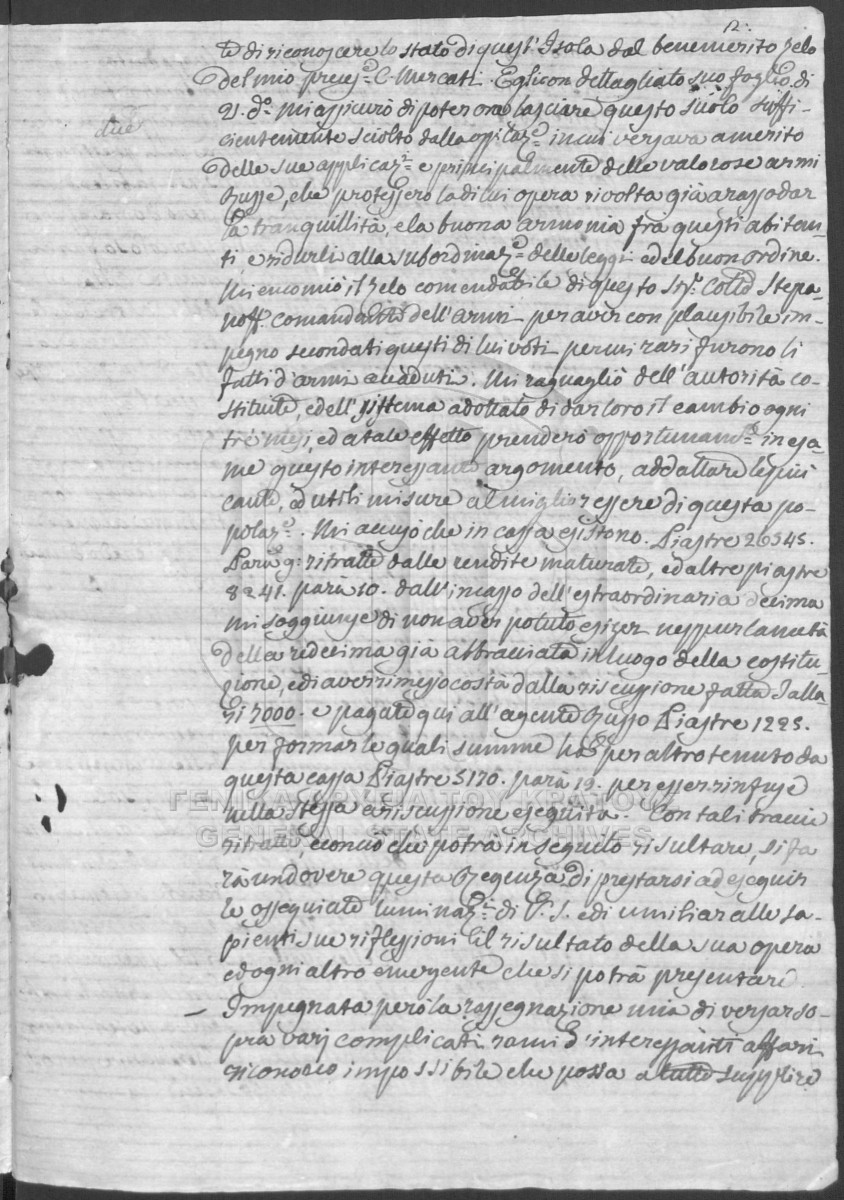 12.
te di riconoscere lo stato di quest' Isola dal benemerito zelo
del mio preces.e C. Mercati. Egli con dettagliato suo foglio di
21. d.o mi assicurò di poter ora lasciare questo suolo suffi-
cientemente sciolto dalla in cui versava a merito
delle sue applicaz.i e principalmente delle valorose armi
Russe, che protessero la di lui opera rivolta già a rassodar
la tranquillità, e la buona armonia fra questi abitan-
ti, e ridurli alla subordinaz.e delle leggi, ed el buon ordine.
Mi encomiò il zelo comendabile di questo Sig.r Coll.o Stepa-
noff. comandante dell'armi per aver con plausibile im-
pegno secondati questi di lui voti per cui rari furono li
fatti d'armi accaduti. Mi raguagliò dell'autorità co-
stituite, e dell' sistema adottato di dar loro il cambio ogni
tre mesi, ed a tale effetto prenderò opportunam.te in esa-
me questo interessante argomento, addattare le più
caute, ed utili misure al miglior essere di questa po-
polaz.e. Mi accusò che in cassa esistono. Piastre 26545.
Parà 9: ritratte dalle rendite maturate, ed altre piastre
8241. parà 10. dall'incasso dell'estraordinaria decima
mi soggiunse di non aver potuto esiger neppur la metà
della redecima già abbracciata in luogo della costitu-
zione, e di aver rimesso costà dalla riscussione fatta Talla-
ri 7000. e pagate qui all'agente Russo Piastre 1225.
per formar le quali summe ha per altro tenuto da
questa cassa Piastre 5170. parà 19. per esser rinfuse
nella stessa a riscussione eseguita. Con tali traccie
ritratte, e con ciò che potrà in seguito risultare, si fa-
rà un dovere questa Regenza di prestarsi ad eseguir
le ossequiate luminaz.i di V. S. e di umiliar alle sa-
pienti sue riflessioni il risultato della sua opera
ed ogni altro emergente che si potrà presentare.
– Impegnata però la rassegnazione mia di versar so-
pra varj complicati rami d'interessanti affari
riconosco impossibile che possa a tutto supplire
ΓΕΝΙΚΑ ΑΡΧΕΙΑ ΤΟΥ ΚΡΑΤΟΥΣ
GENERAL STATE ARCHIVES